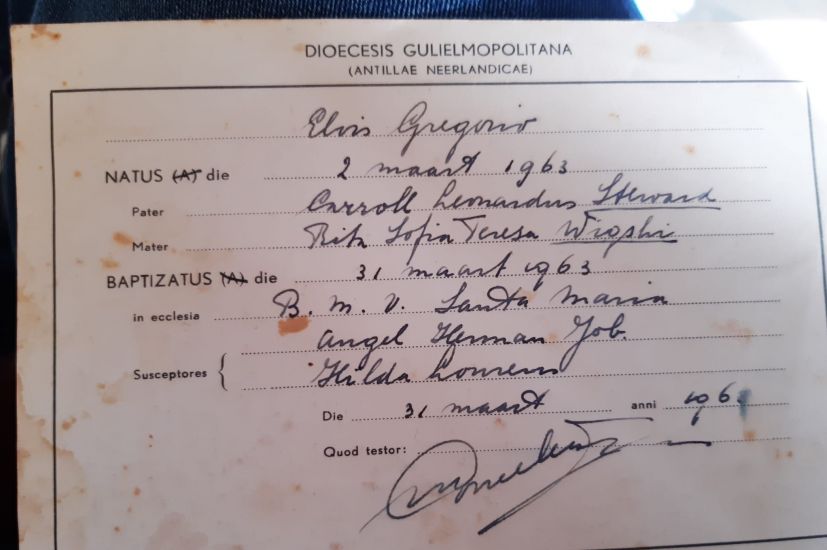 DIOECESIS GULIELMOPOLITANA
(ANTILLAE NEERLANDICAE)
Elvis Gregorio
NATUS (A) die 2 maart 1963
Pater Carroll Leonardus Steward
Mater Rita Sofia Teresa
BAPTIZATUS (A) die 31 maart 1963
in ecclesia B. M. V. Santa Maria
Angel Herman Job.
Susceptores Hilda Lourens
Die 31 maart anni 1963
Quod testor: